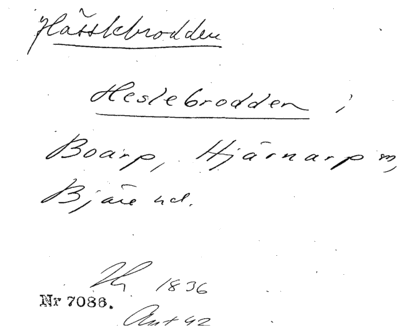 Hässlebrodden
Heslebrodden i
Boarp, Hjärnarp sn,
Bjäre hd.
1836
Nr 7086.
Ant 42